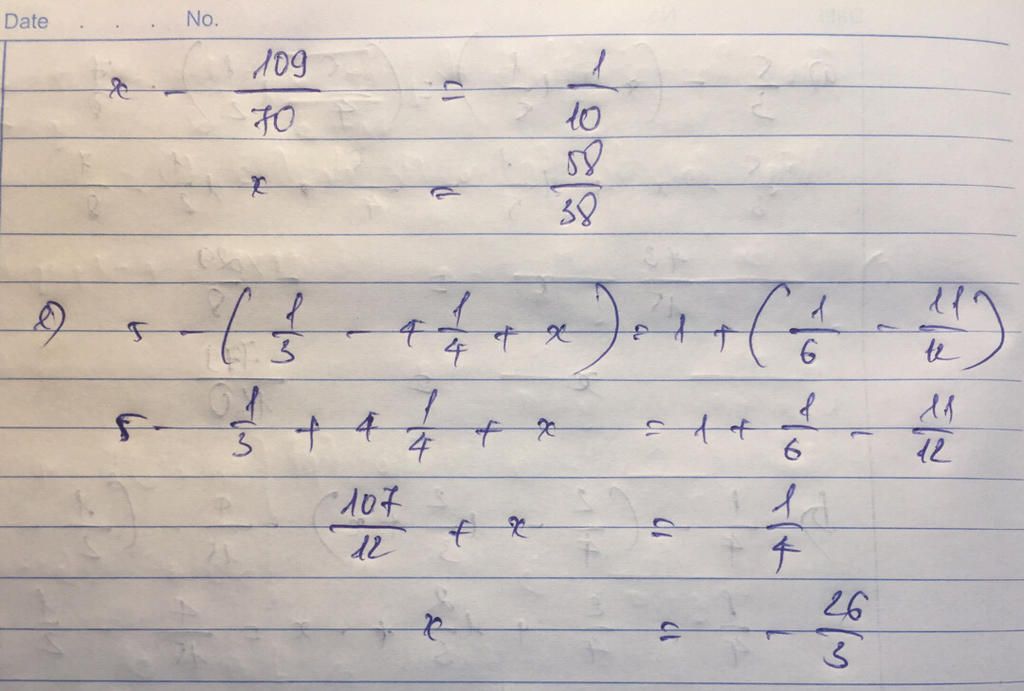 Date . . . No.
x - 109/70 = 1/10
x = 58/38
e) 5 - (1/3 - 4 1/4 + x) = 1 + (1/6 - 11/12)
5 - 1/3 + 4 1/4 + x = 1 + 1/6 - 11/12
107/12 + x = 1/4
x = - 26/3